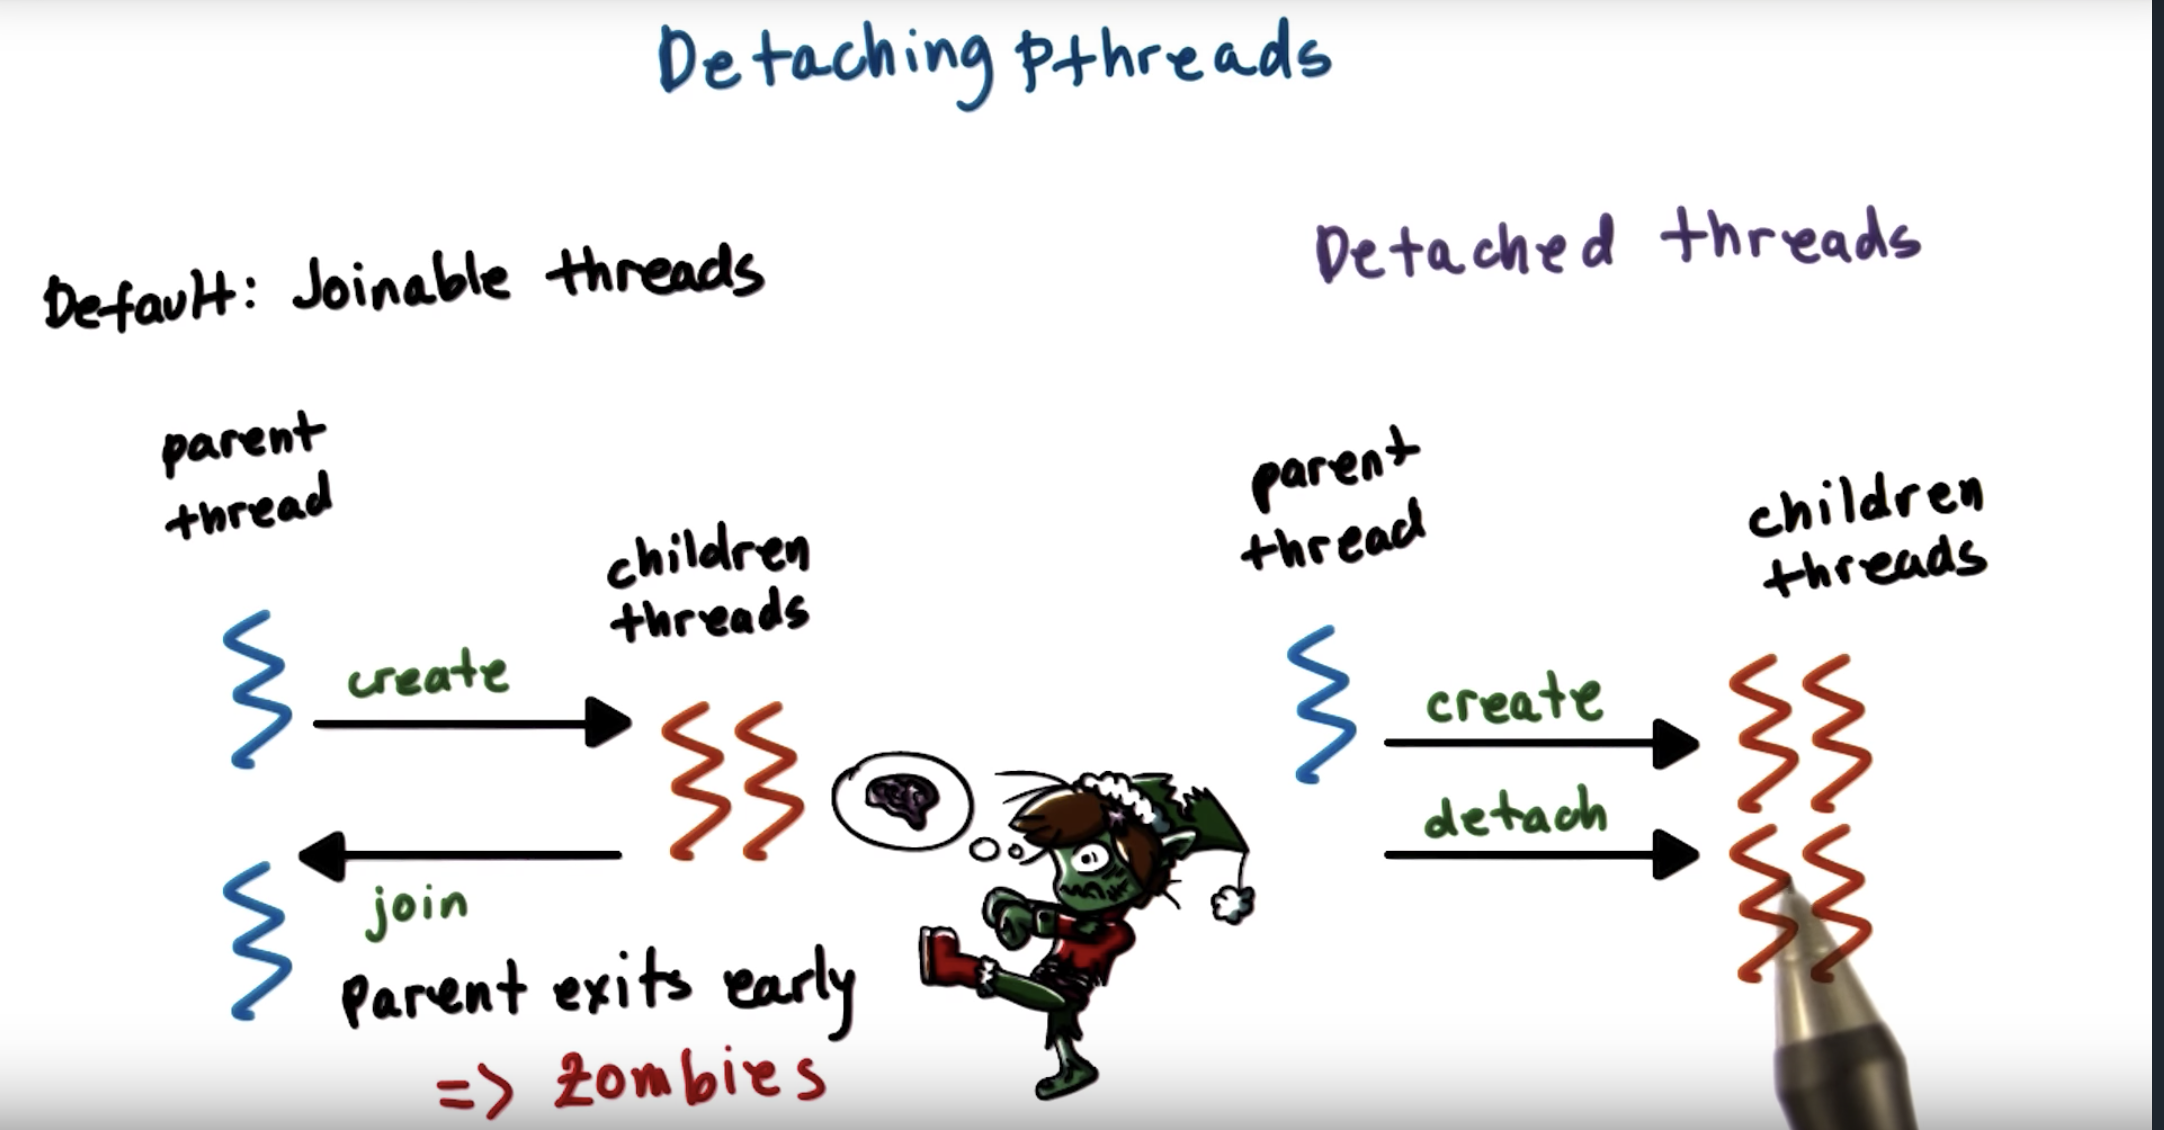 Detaching Pthreads
Default: Joinable threads
parent
thread
children
threads
create
join
Parent exits early
=> Zombies
Detached threads
parent
thread
children
threads
create
detach